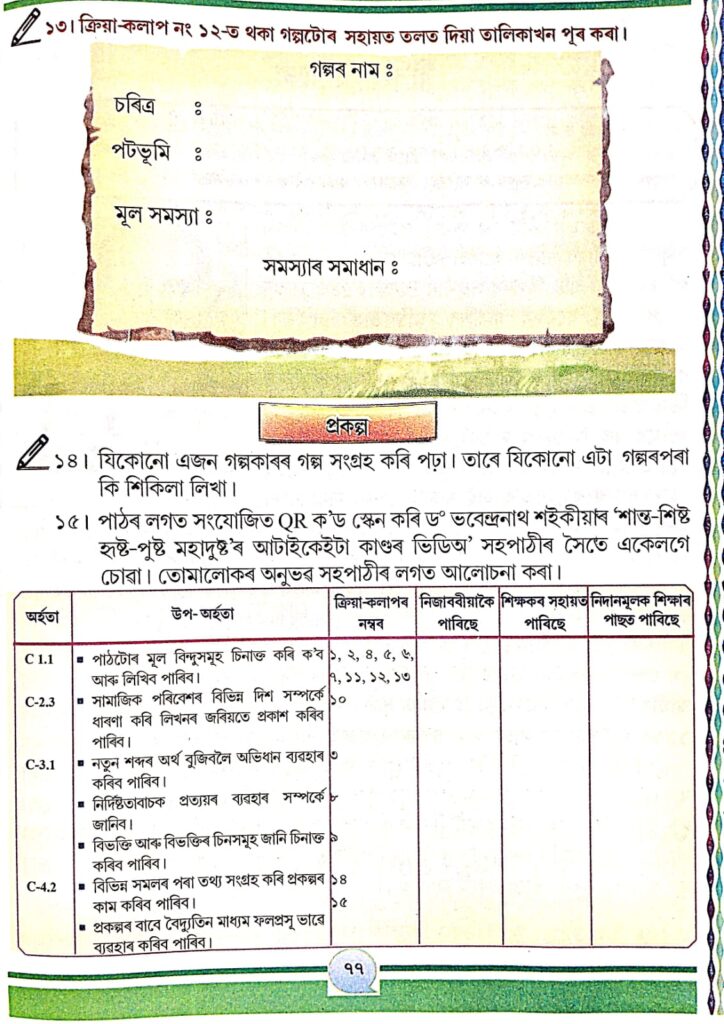 ১৩। ক্ৰিয়া-কলাপ নং ১২-ত থকা গল্পটোৰ সহায়ত তলত দিয়া তালিকাখন পূৰ কৰা।
গল্পৰ নাম ঃ
চৰিত্ৰ ঃ
পটভূমি ঃ
মূল সমস্যা ঃ
সমস্যাৰ সমাধান ঃ
প্ৰকল্প
১৪। যিকোনো এজন গল্পকাৰৰ গল্প সংগ্ৰহ কৰি পঢ়া। তাৰে যিকোনো এটা গল্পৰপৰা
কি শিকিলা লিখা।
১৫। পাঠৰ লগত সংযোজিত QR ক'ড স্কেন কৰি ড° ভবেন্দ্ৰনাথ শইকীয়াৰ ‘শান্ত-শিষ্ট
হৃষ্ট-পুষ্ট মহাদুষ্ট’ৰ আটাইকেইটা কাণ্ডৰ ভিডিঅ’ সহপাঠীৰ সৈতে একেলগে
চোৱা। তোমালোকৰ অনুভৱ সহপাঠীৰ লগত আলোচনা কৰা।
অৰ্হতা উপ-অৰ্হতা ক্ৰিয়া-কলাপৰ নিজাববীয়াকৈ শিক্ষকৰ সহায়ত নিদানমূলক শিক্ষাৰ
নম্বৰ পাৰিছে পাৰিছে পাছত পাৰিছে
C 1.1 ▪ পাঠটোৰ মূল বিন্দুসমূহ চিনাক্ত কৰি ক'ব ১, ২, ৪, ৫, ৬,
আৰু লিখিব পাৰিব। ৭, ১১, ১২, ১৩
C-2.3 ▪ সামাজিক পৰিবেশৰ বিভিন্ন দিশ সম্পৰ্কে ১০
ধাৰণা কৰি লিখনৰ জৰিয়তে প্ৰকাশ কৰিব
পাৰিব।
C-3.1 ▪ নতুন শব্দৰ অৰ্থ বুজিবলৈ অভিধান ব্যৱহাৰ ৩
কৰিব পাৰিব।
▪ নিৰ্দিষ্টতাবাচক প্ৰত্যয়ৰ ব্যৱহাৰ সম্পৰ্কে ৮
জানিব।
▪ বিভক্তি আৰু বিভক্তিৰ চিনসমূহ জানি চিনাক্ত ৯
কৰিব পাৰিব।
C-4.2 ▪ বিভিন্ন সমলৰ পৰা তথ্য সংগ্ৰহ কৰি প্ৰকল্পৰ ১৪
কাম কৰিব পাৰিব। ১৫
▪ প্ৰকল্পৰ বাবে বৈদ্যুতিন মাধ্যম ফলপ্ৰসূ ভাৱে
ব্যৱহাৰ কৰিব পাৰিব।
৭৭